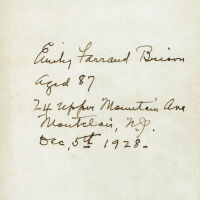 Emily Farrand
Aged 87
24 Upper Mountain Ave
Montclair, N.J.
Dec, 5th 1928.